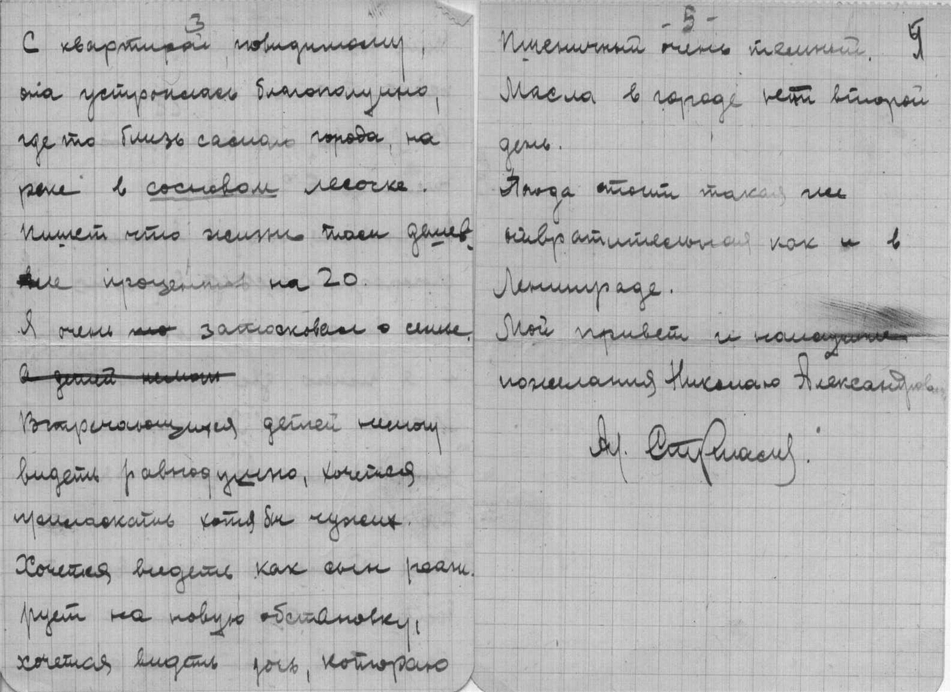 3
С квартирой, повидимому,
она устроилась благополучно,
где то близь самого города, на
реке в сосновом лесочке.
Пишет что жизнь там дешев-
ле процентов на 20.
Я очень затосковал о семье.
а детей немогу
Встречающихся детей немогу
видеть равнодушно, хочется
приласкать хотя бы чужих.
Хочется видеть как сын реаги-
рует на новую обстановку,
хочется видеть дочь, которую
- 5 -
Пшеничный очень темный.
Масла в городе нет второй
день.
Погода стоит такая же
отвратительная как и в
Ленинграде.
Мой привет и наилучшие
пожелания Николаю Александрович
М.